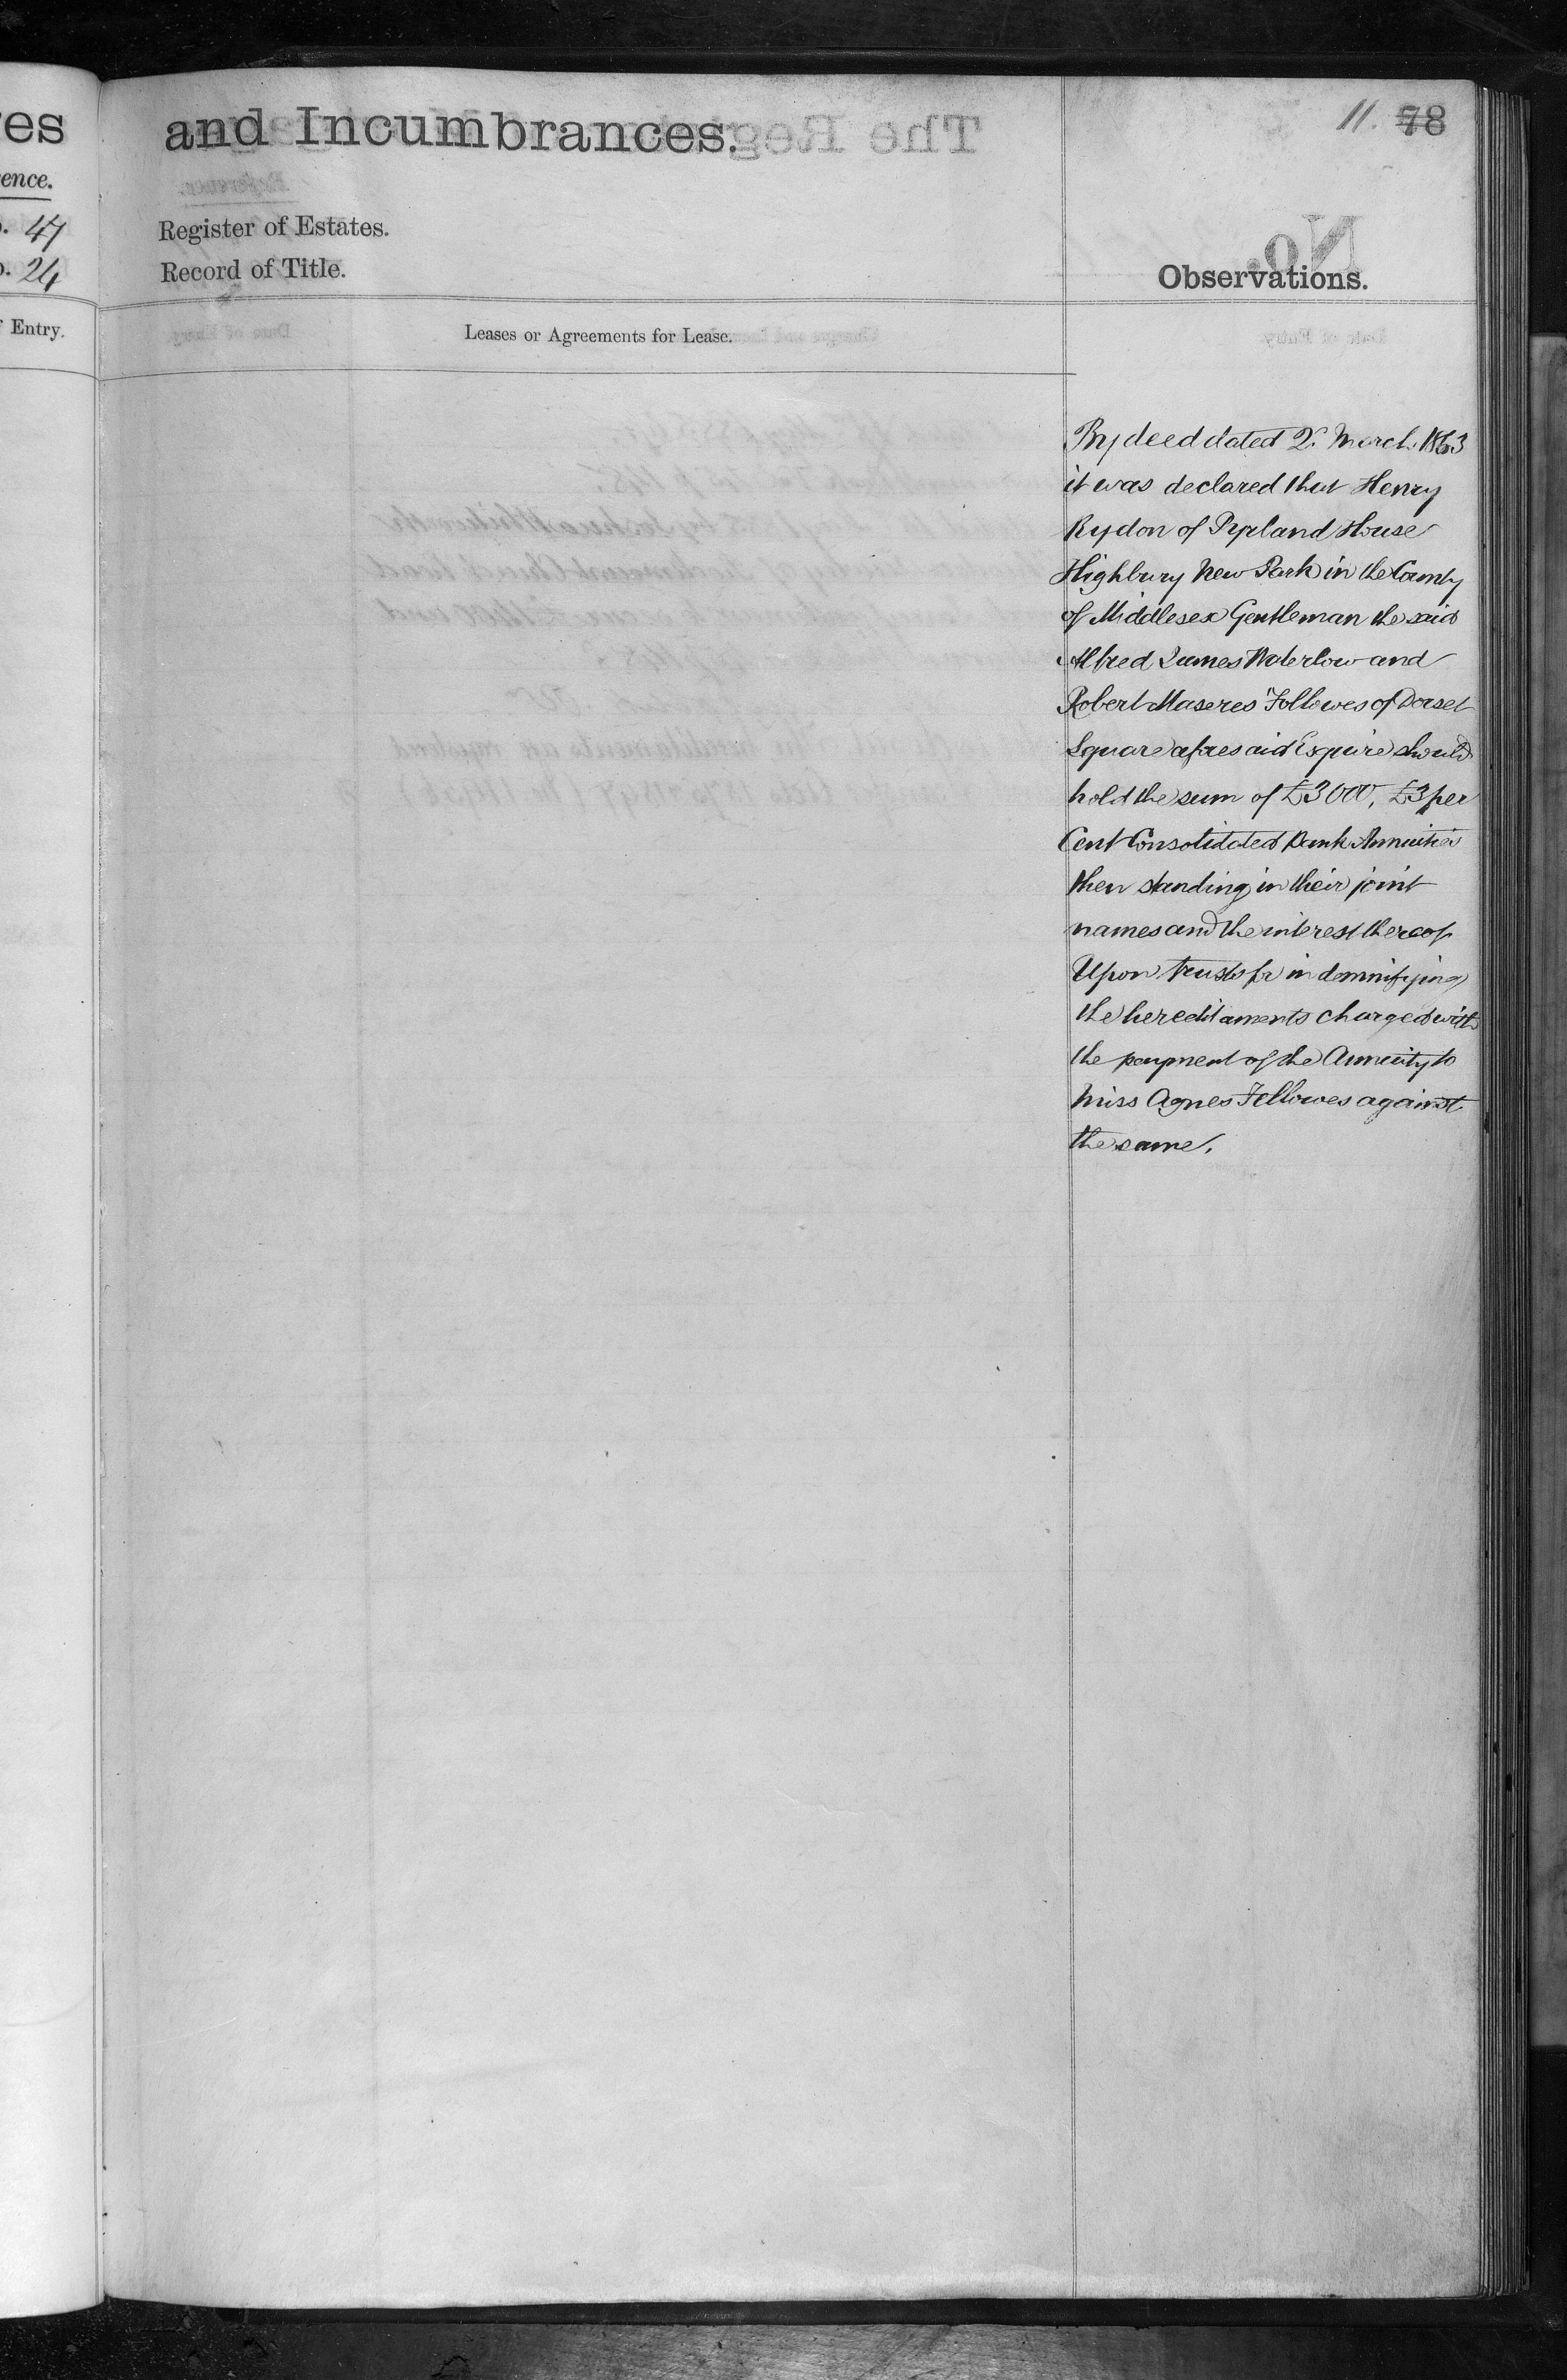 es
ence.
47
24
Entry.
and Incumbrances.
Register of Estates.
Record of Title.
Leases or Agreements for Lease.
11. 78
Observations.
By deed dated 2. March 1863
it was declared that Henry
Rydon of Pyrland House
Highbury New Park in the County
of Middlesex Gentleman the said
Alfred James Waterlow and
Robert Maseres Fellowes of Dorset
Square aforesaid Esquire should
hold the sum of £3000, £3 per
Cent Consolidated Bank Annuities
then standing in their joint
names and the interest thereof
Upon trusts for indemnifying
the hereditaments charged with
the payment of the Annuity to
Miss Agnes Fellowes against
the same.